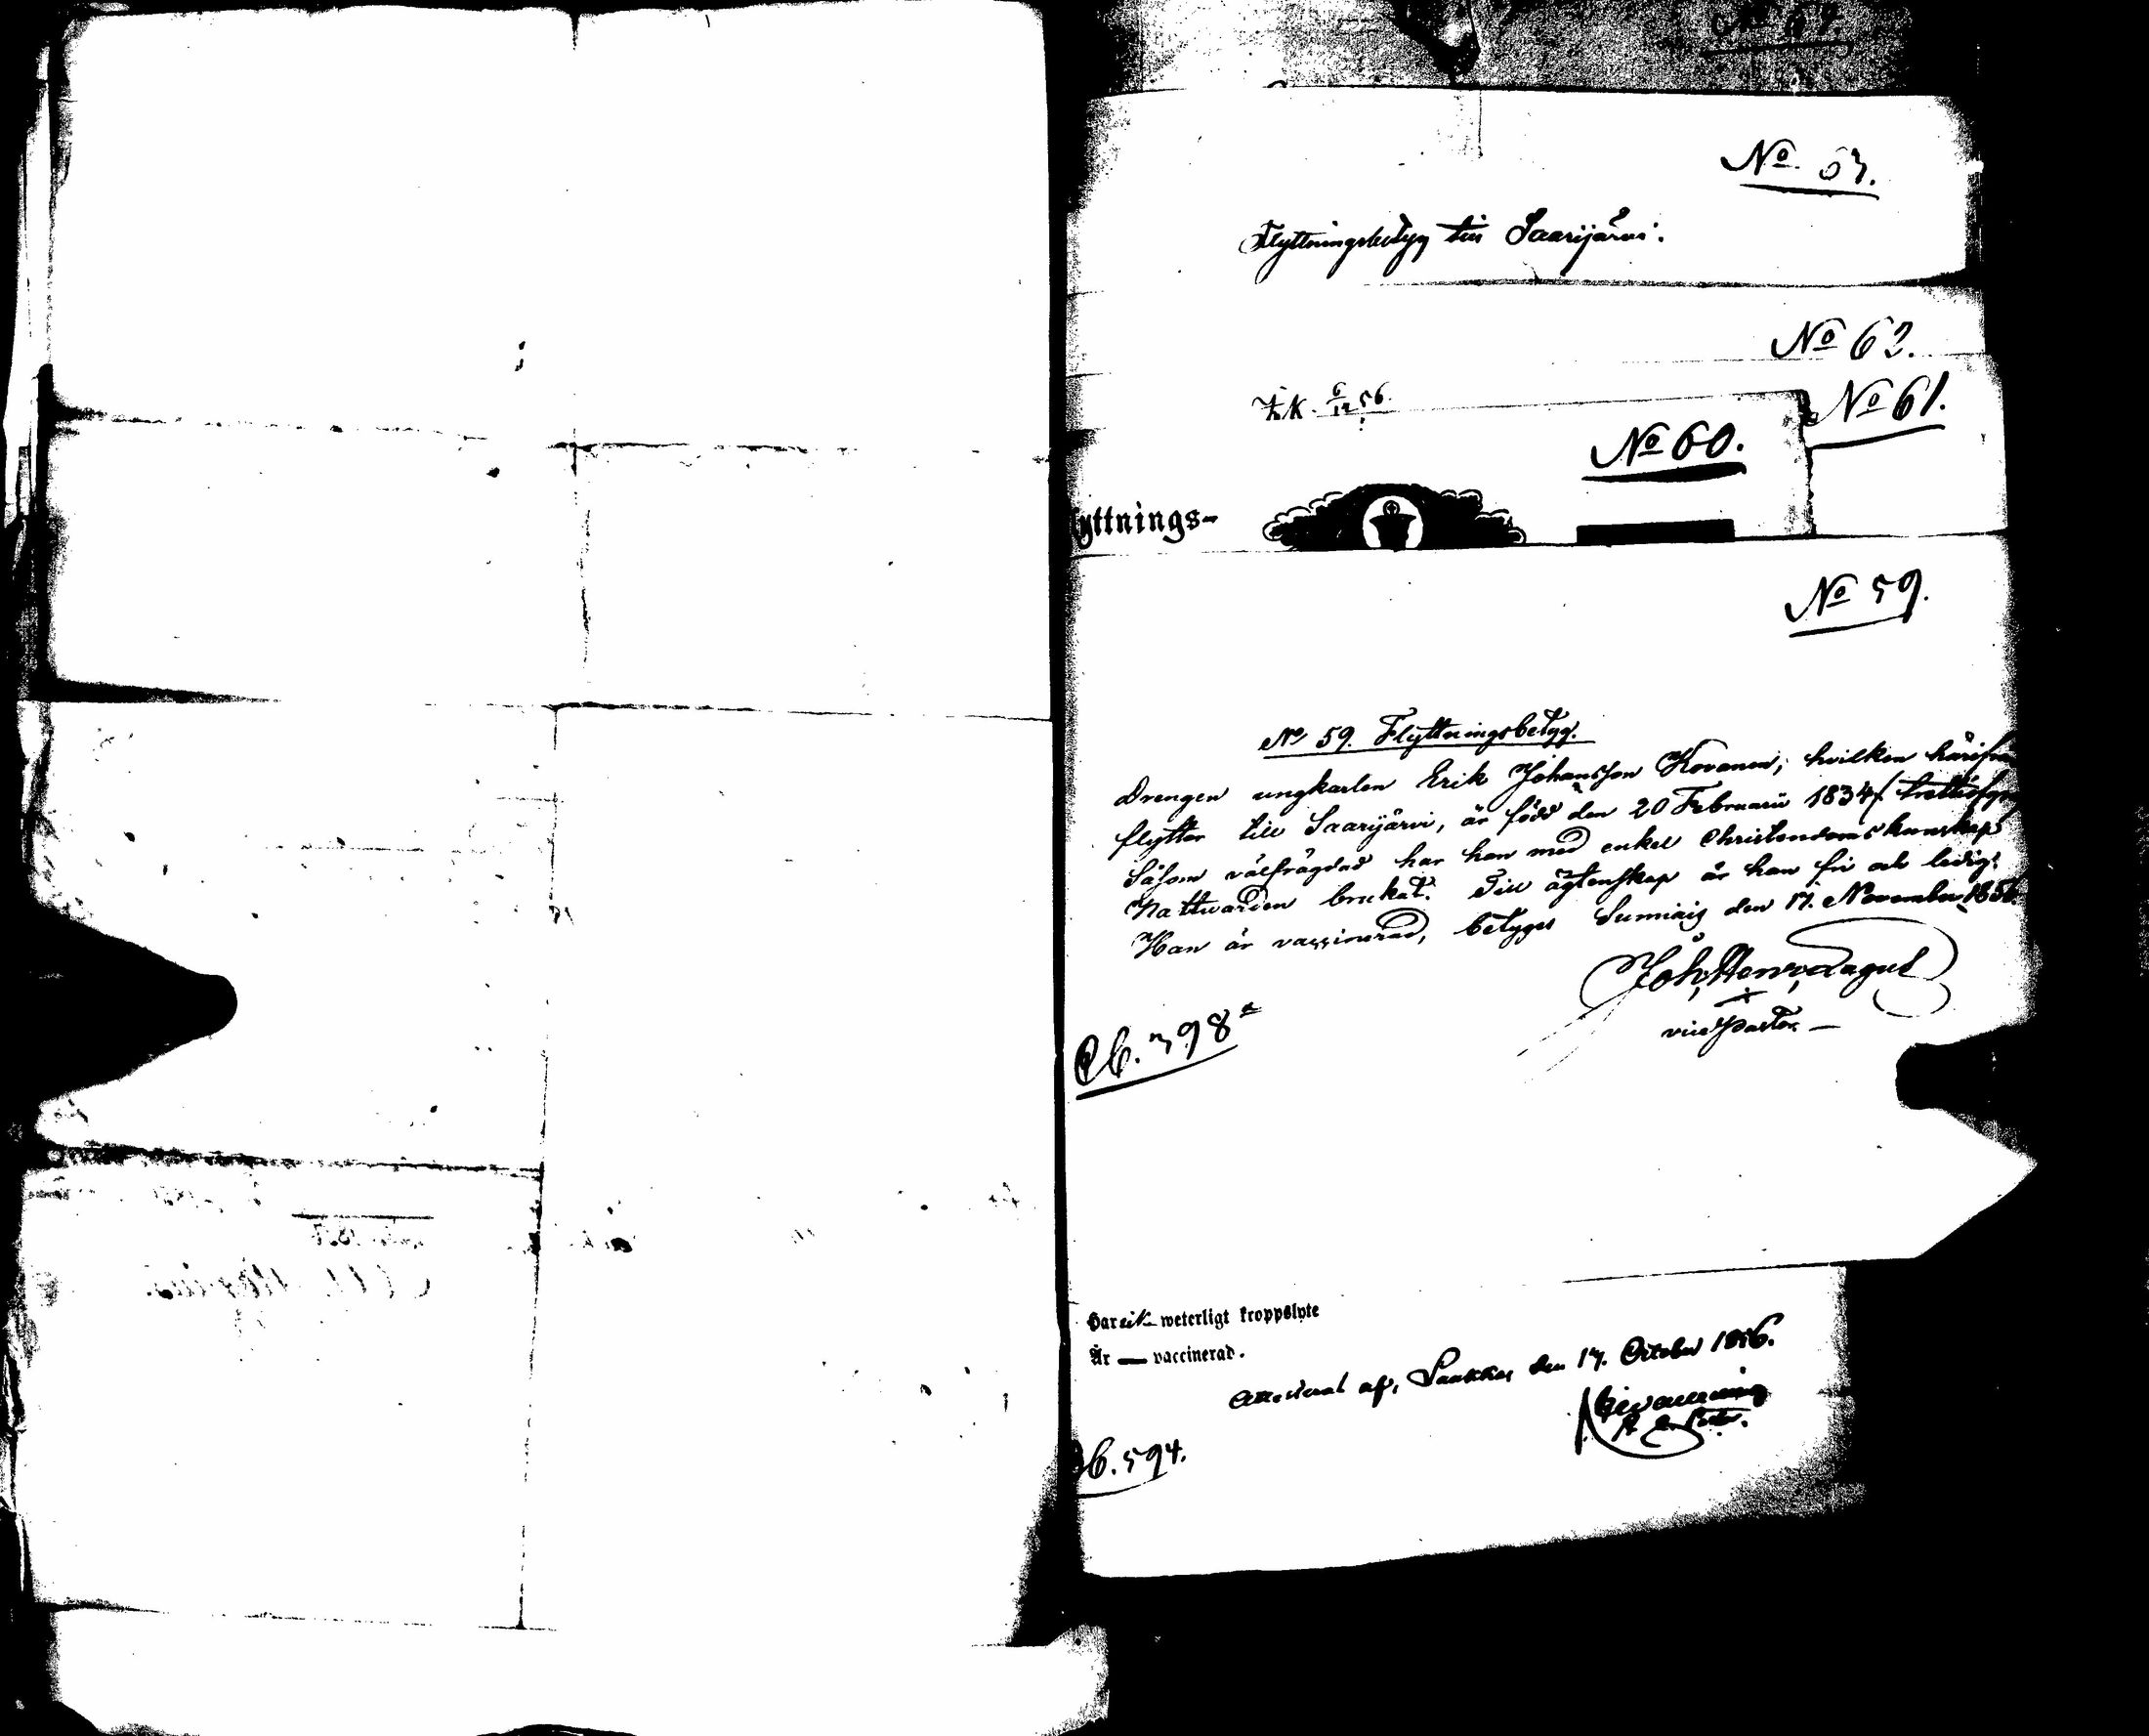 No 63.
Flyttningsbetyg till Saarijärvi.
No 62.
No 61.
No 60.
yttnings-
No 59.
No 59. Flyttningsbetyg.
Drengen ungkarlen Erik Johansson Kovanen, hvilken härifrn
flyttar till Saarijärvi, är född den 20 Februarii 1834 (trettiofyra
Såsom välfrägdad har han med enkel Christendomskunskap
Nattwarden brukat. Till ägtenskap är han fri och ledig.
Han är vaccinerad, betygar Sumiais den 17 November 1856.
Joh. Henr. Lagus
vice Pastor.
Cb. 398
Har eik weterligt kroppslyte
Är — vaccinerad.
Attesterat af, Laukkas den 17. October 1856.
b. 594.